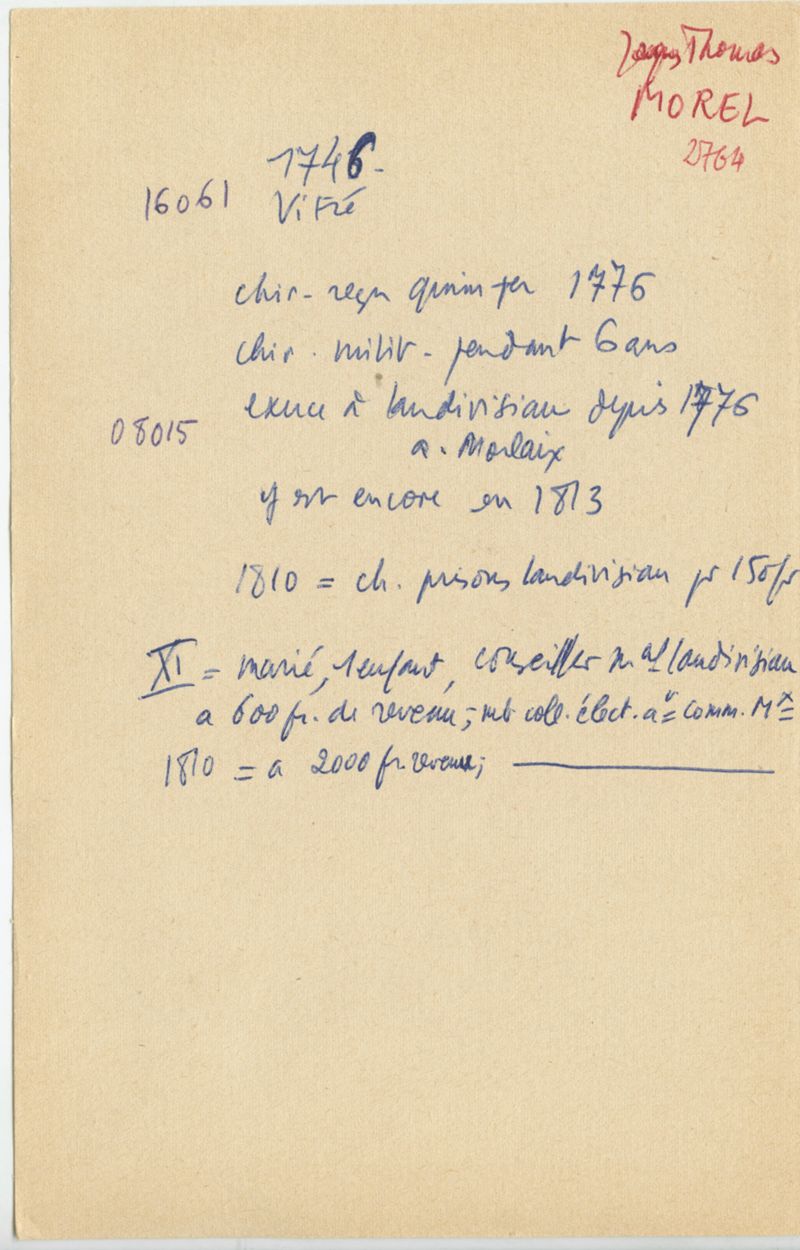 Jacques Thomas
MOREL
2764
1746-
16061 Vitré
chir- reçu quimper 1776
chir. milit- pendant 6 ans
exerce à landivisiau depuis 1776
08015
a. Morlaix
y est encore en 1813
1810 = ch. prisons landivisiau pr 150 fr
XI = marié, 1 enfant, conseiller mal landivisiau
a 600 fr. de revenu; mb coll. élect. av = comm. Mx =
1810 = a 2000 fr. revenu; ———